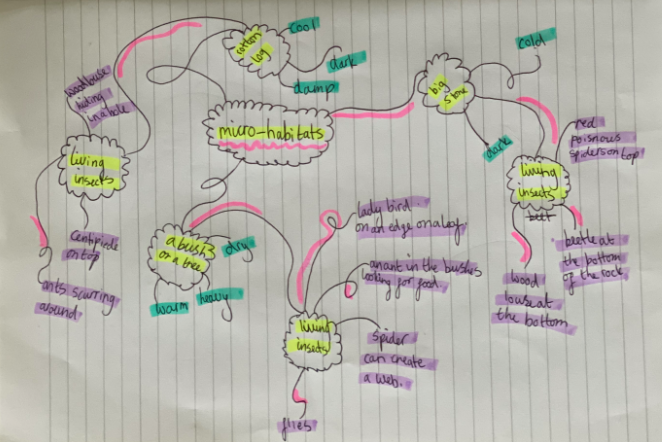 micro-habitats
cotton
log
cool
dark
damp
living
insects
woodlouse
hiding
in a hole
centipicde
on top
ants scurring
around
big
stone
cold
dark
living
insects
beet
red
poisnous
spiders on top
beetle at
the bottom
of the rock
wood
louse at
the bottom
a bush
or a tree
dry
warm
heavy
living
insects
lady bird
on an edge on a log.
an ant in the bushes
looking for food.
spider
can create
a web.
flies